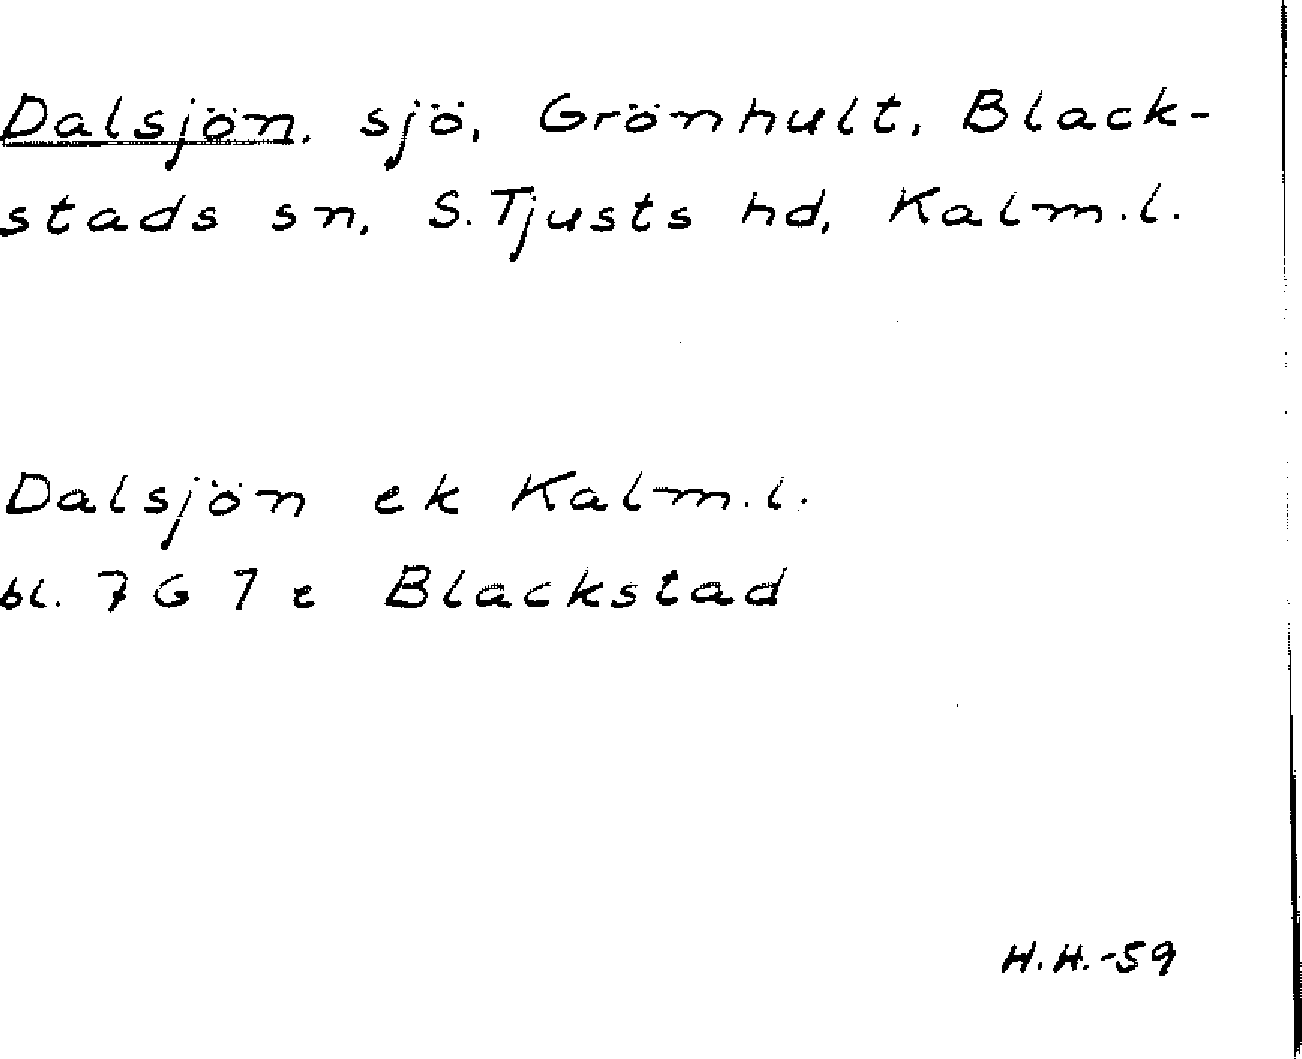 Dalsjön, sjö, Grönhult, Black-
stads sn, S. Tjusts hd, Kalm.l.
Dalsjön ek Kalm.l.
bl. 7 G 7 e Blackstad
H.H.-59